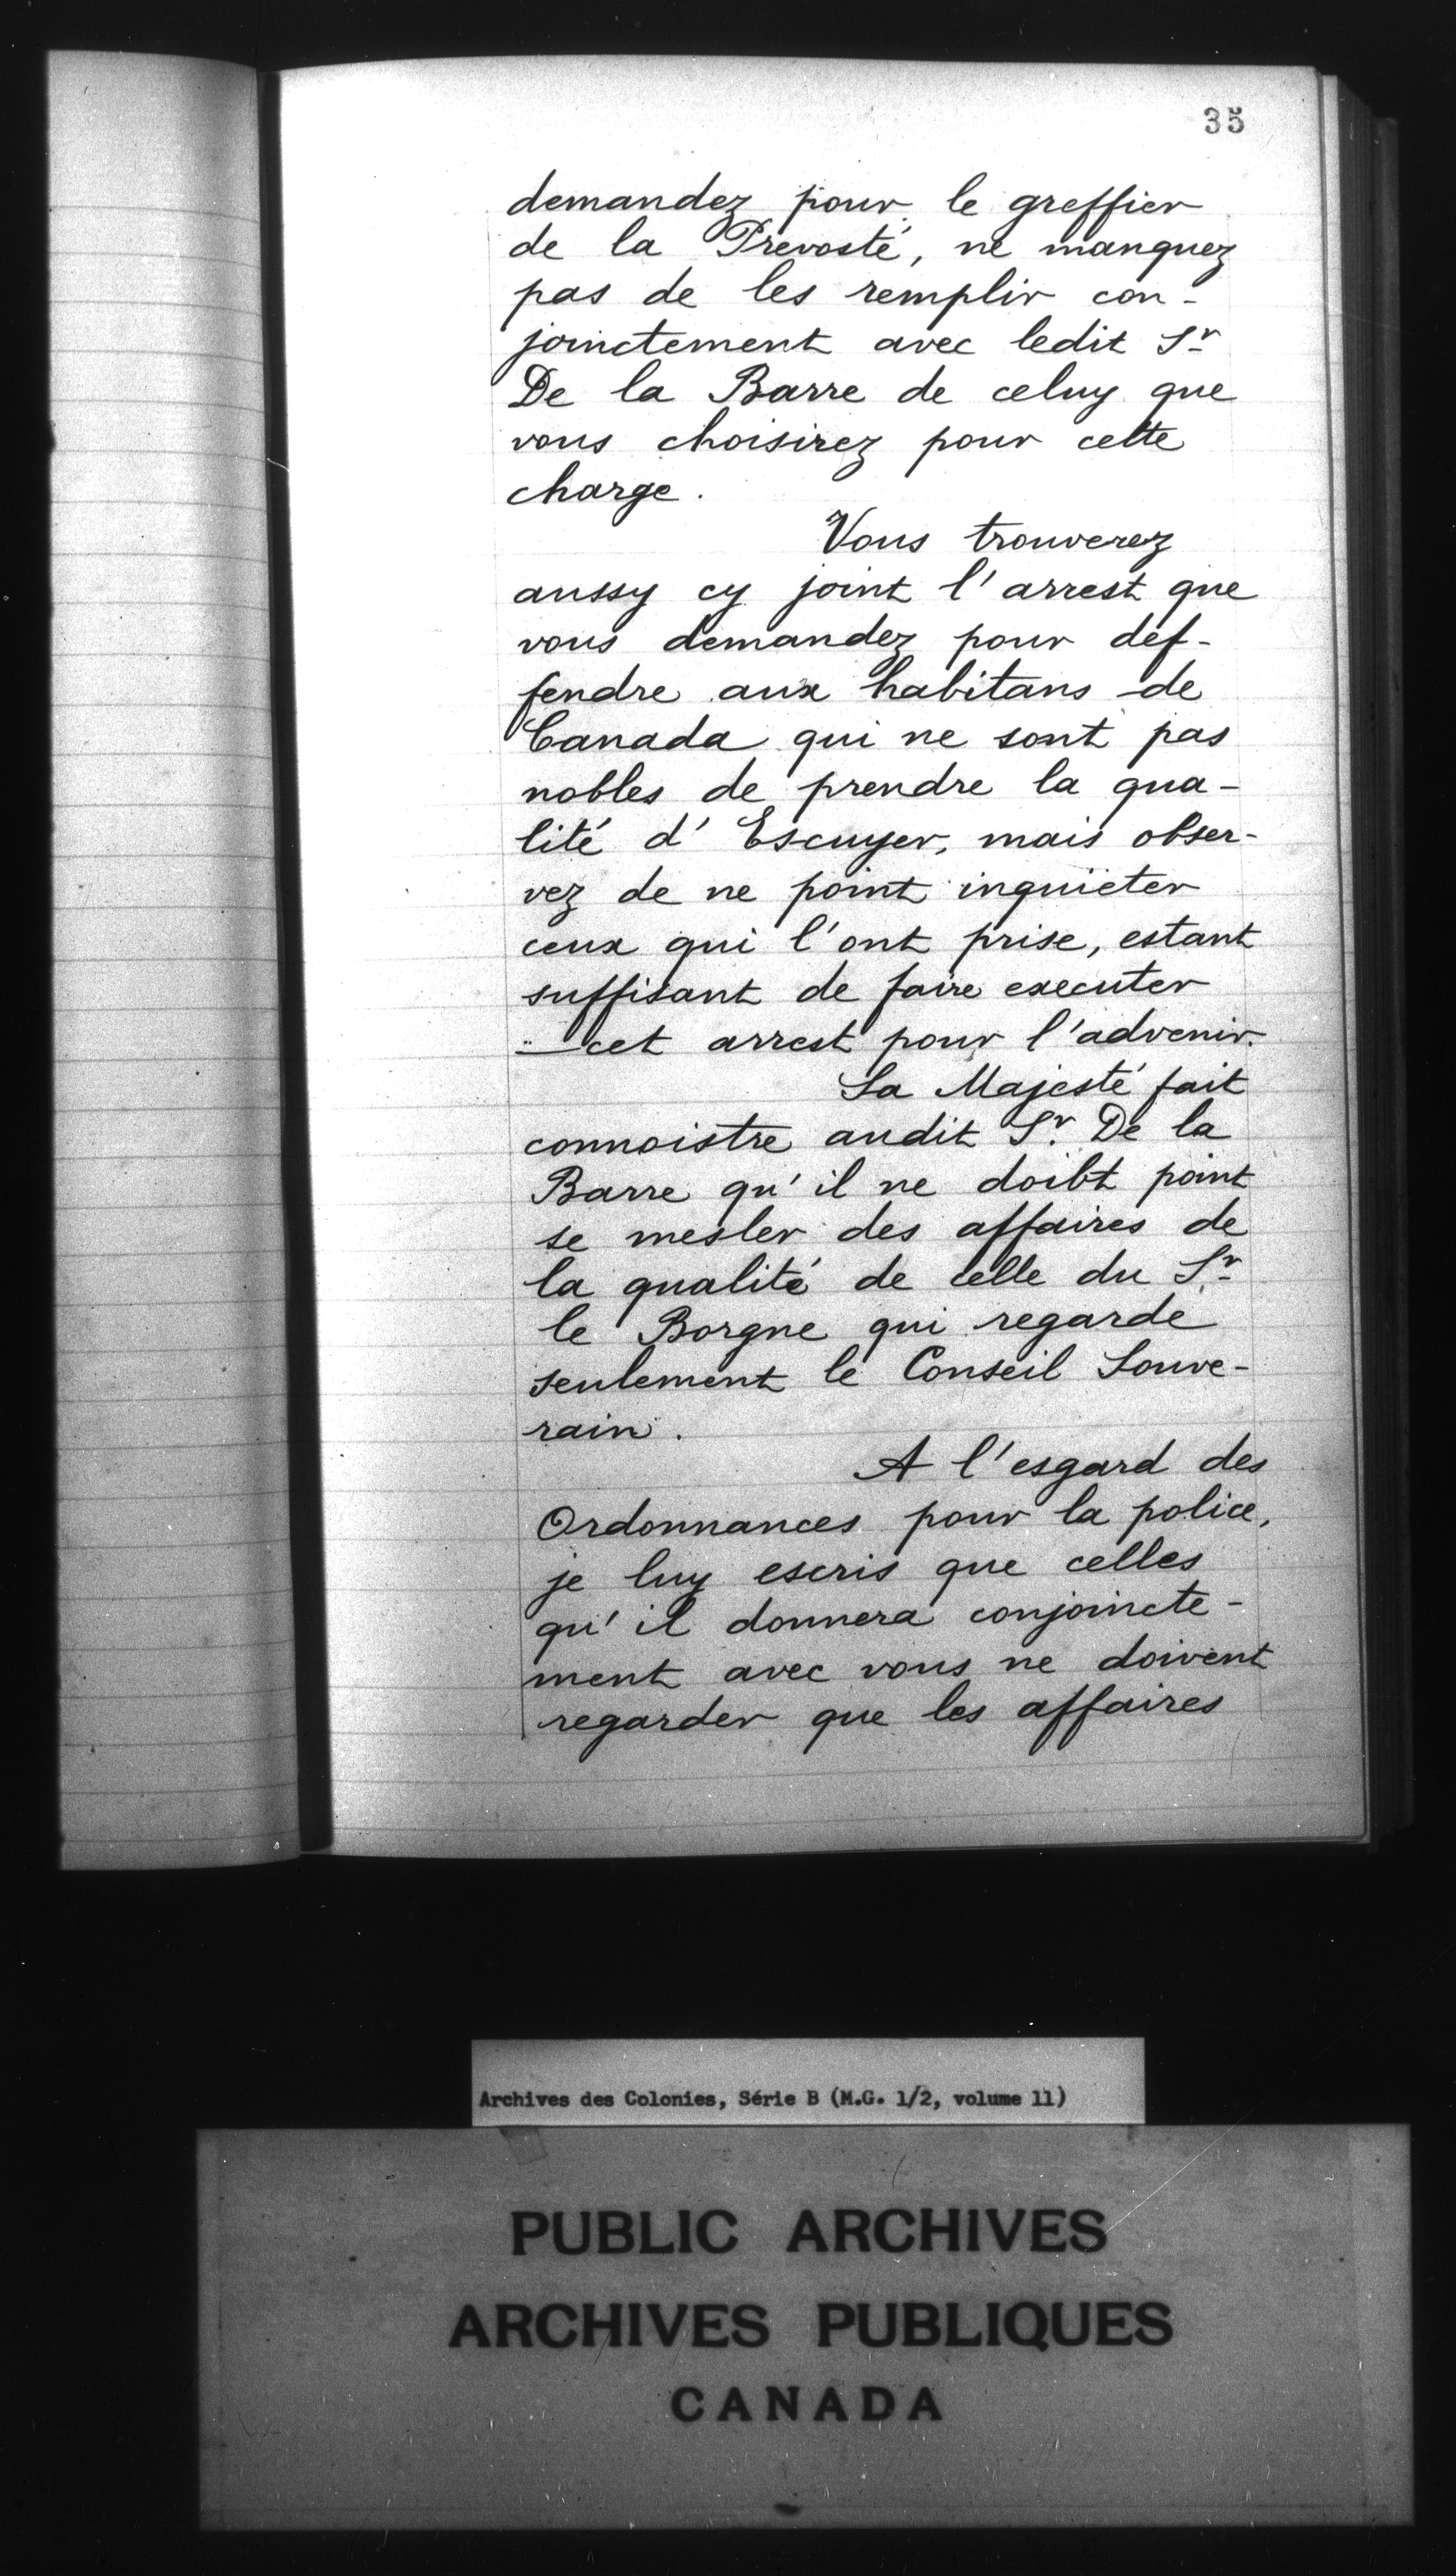 35
demandez pour le greffier
de la Prevosté, ne manquez
pas de les remplir con-
joinctement avec ledit Sr
De la Barre de celuy que
vous choisirez pour cette
charge.
Vous trouverez
aussy cy joint l'arrest que
vous demandez pour def-
fendre aux habitans de
Canada qui ne sont pas
nobles de prendre la qua-
lité d'Escuyer, mais obser-
vez de ne point inquiéter
ceux qui l'ont prise, estant
suffisant de faire executer
cet arrest pour l'advenir.
Sa Majesté fait
connoistre audit Sr. De la
Barre qu'il ne doibt point
se mesler des affaires de
la qualité de celle du Sr
le Borgne qui regarde
seulement le Conseil Souve-
rain.
A l'esgard des
Ordonnances pour la police,
je luy escris que celles
qu'il donnera conjoincte-
ment avec vous ne doivent
regarder que les affaires
Archives des Colonies, Série B (M.G. 1/2, volume 11)
PUBLIC ARCHIVES
ARCHIVES PUBLIQUES
CANADA